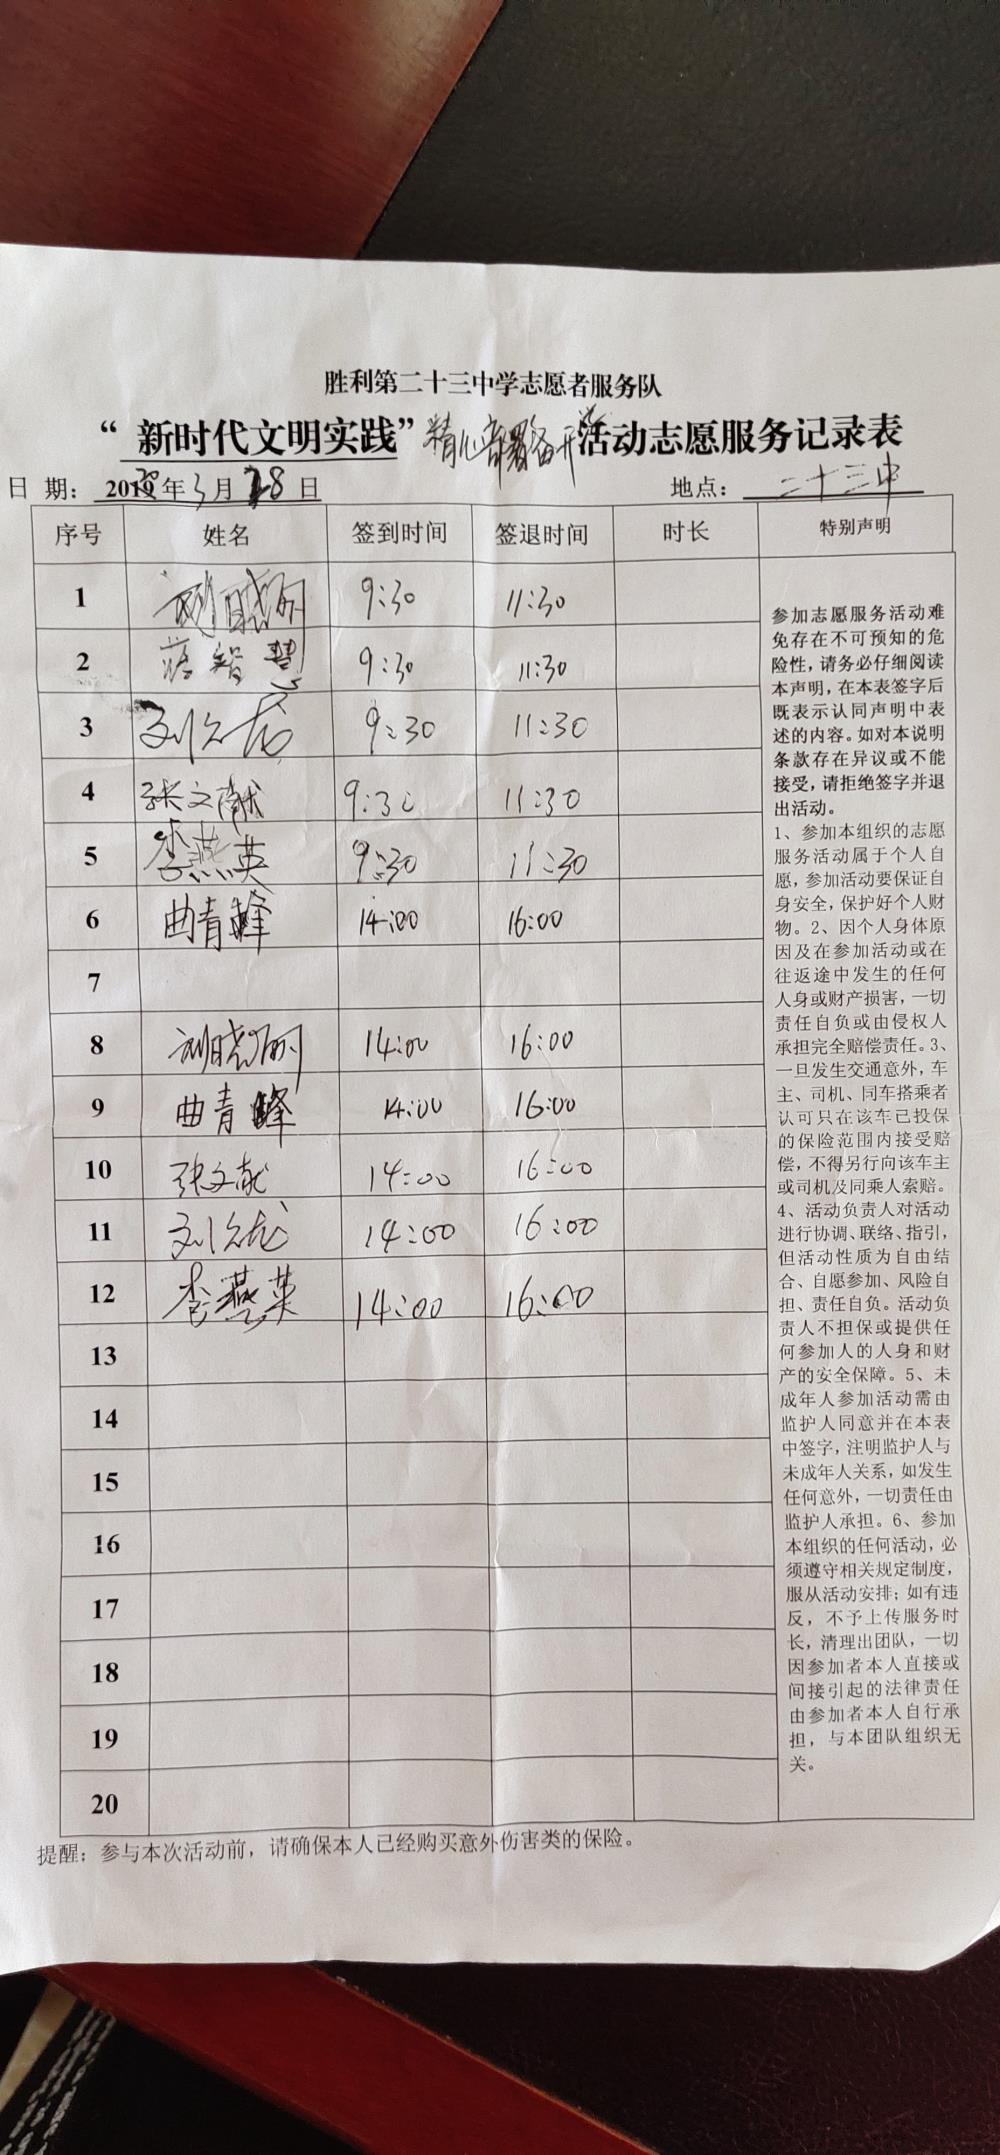 胜利第二十三中学志愿者服务队
“新时代文明实践”精心部署备开 活动志愿服务记录表
日 期： 年3月28日 地点：二十三中
序号 姓名 签到时间 签退时间 时长 特别声明
1 9:30 11:30
2 智慧 9:30 11:30
3 刘 龙 9:30 11:30
4 张文献 9:30 11:30
5 李燕英 9:30 11:30
6 曲青峰 14:00 16:00
7
8 刘晓丽 14:00 16:00
9 曲青峰 14:00 16:00
10 张文献 14:00 16:00
11 刘 龙 14:00 16:00
12 李燕英 14:00 16:00
13
14
15
16
17
18
19
20
参加志愿服务活动难
免存在不可预知的危
险性，请务必仔细阅读
本声明，在本表签字后
既表示认同声明中表
述的内容。如对本说明
条款存在异议或不能
接受，请拒绝签字并退
出活动。
1、参加本组织的志愿
服务活动属于个人自
愿，参加活动要保证自
身安全，保护好个人财
物。2、因个人身体原
因及在参加活动或在
往返途中发生的任何
人身或财产损害，一切
责任自负或由侵权人
承担完全赔偿责任。3、
一旦发生交通意外，车
主、司机、同车搭乘者
认可只在该车已投保
的保险范围内接受赔
偿，不得另行向该车主
或司机及同乘人索赔。
4、活动负责人对活动
进行协调、联络、指引，
但活动性质为自由结
合、自愿参加、风险自
担、责任自负。活动负
责人不担保或提供任
何参加人的人身和财
产的安全保障。5、未
成年人参加活动需由
监护人同意并在本表
中签字，注明监护人与
未成年人关系，如发生
任何意外，一切责任由
监护人承担。6、参加
本组织的任何活动，必
须遵守相关规定制度，
服从活动安排；如有违
反，不予上传服务时
长，清理出团队，一切
因参加者本人直接或
间接引起的法律责任
由参加者本人自行承
担，与本团队组织无
关。
提醒：参与本次活动前，请确保本人已经购买意外伤害类的保险。